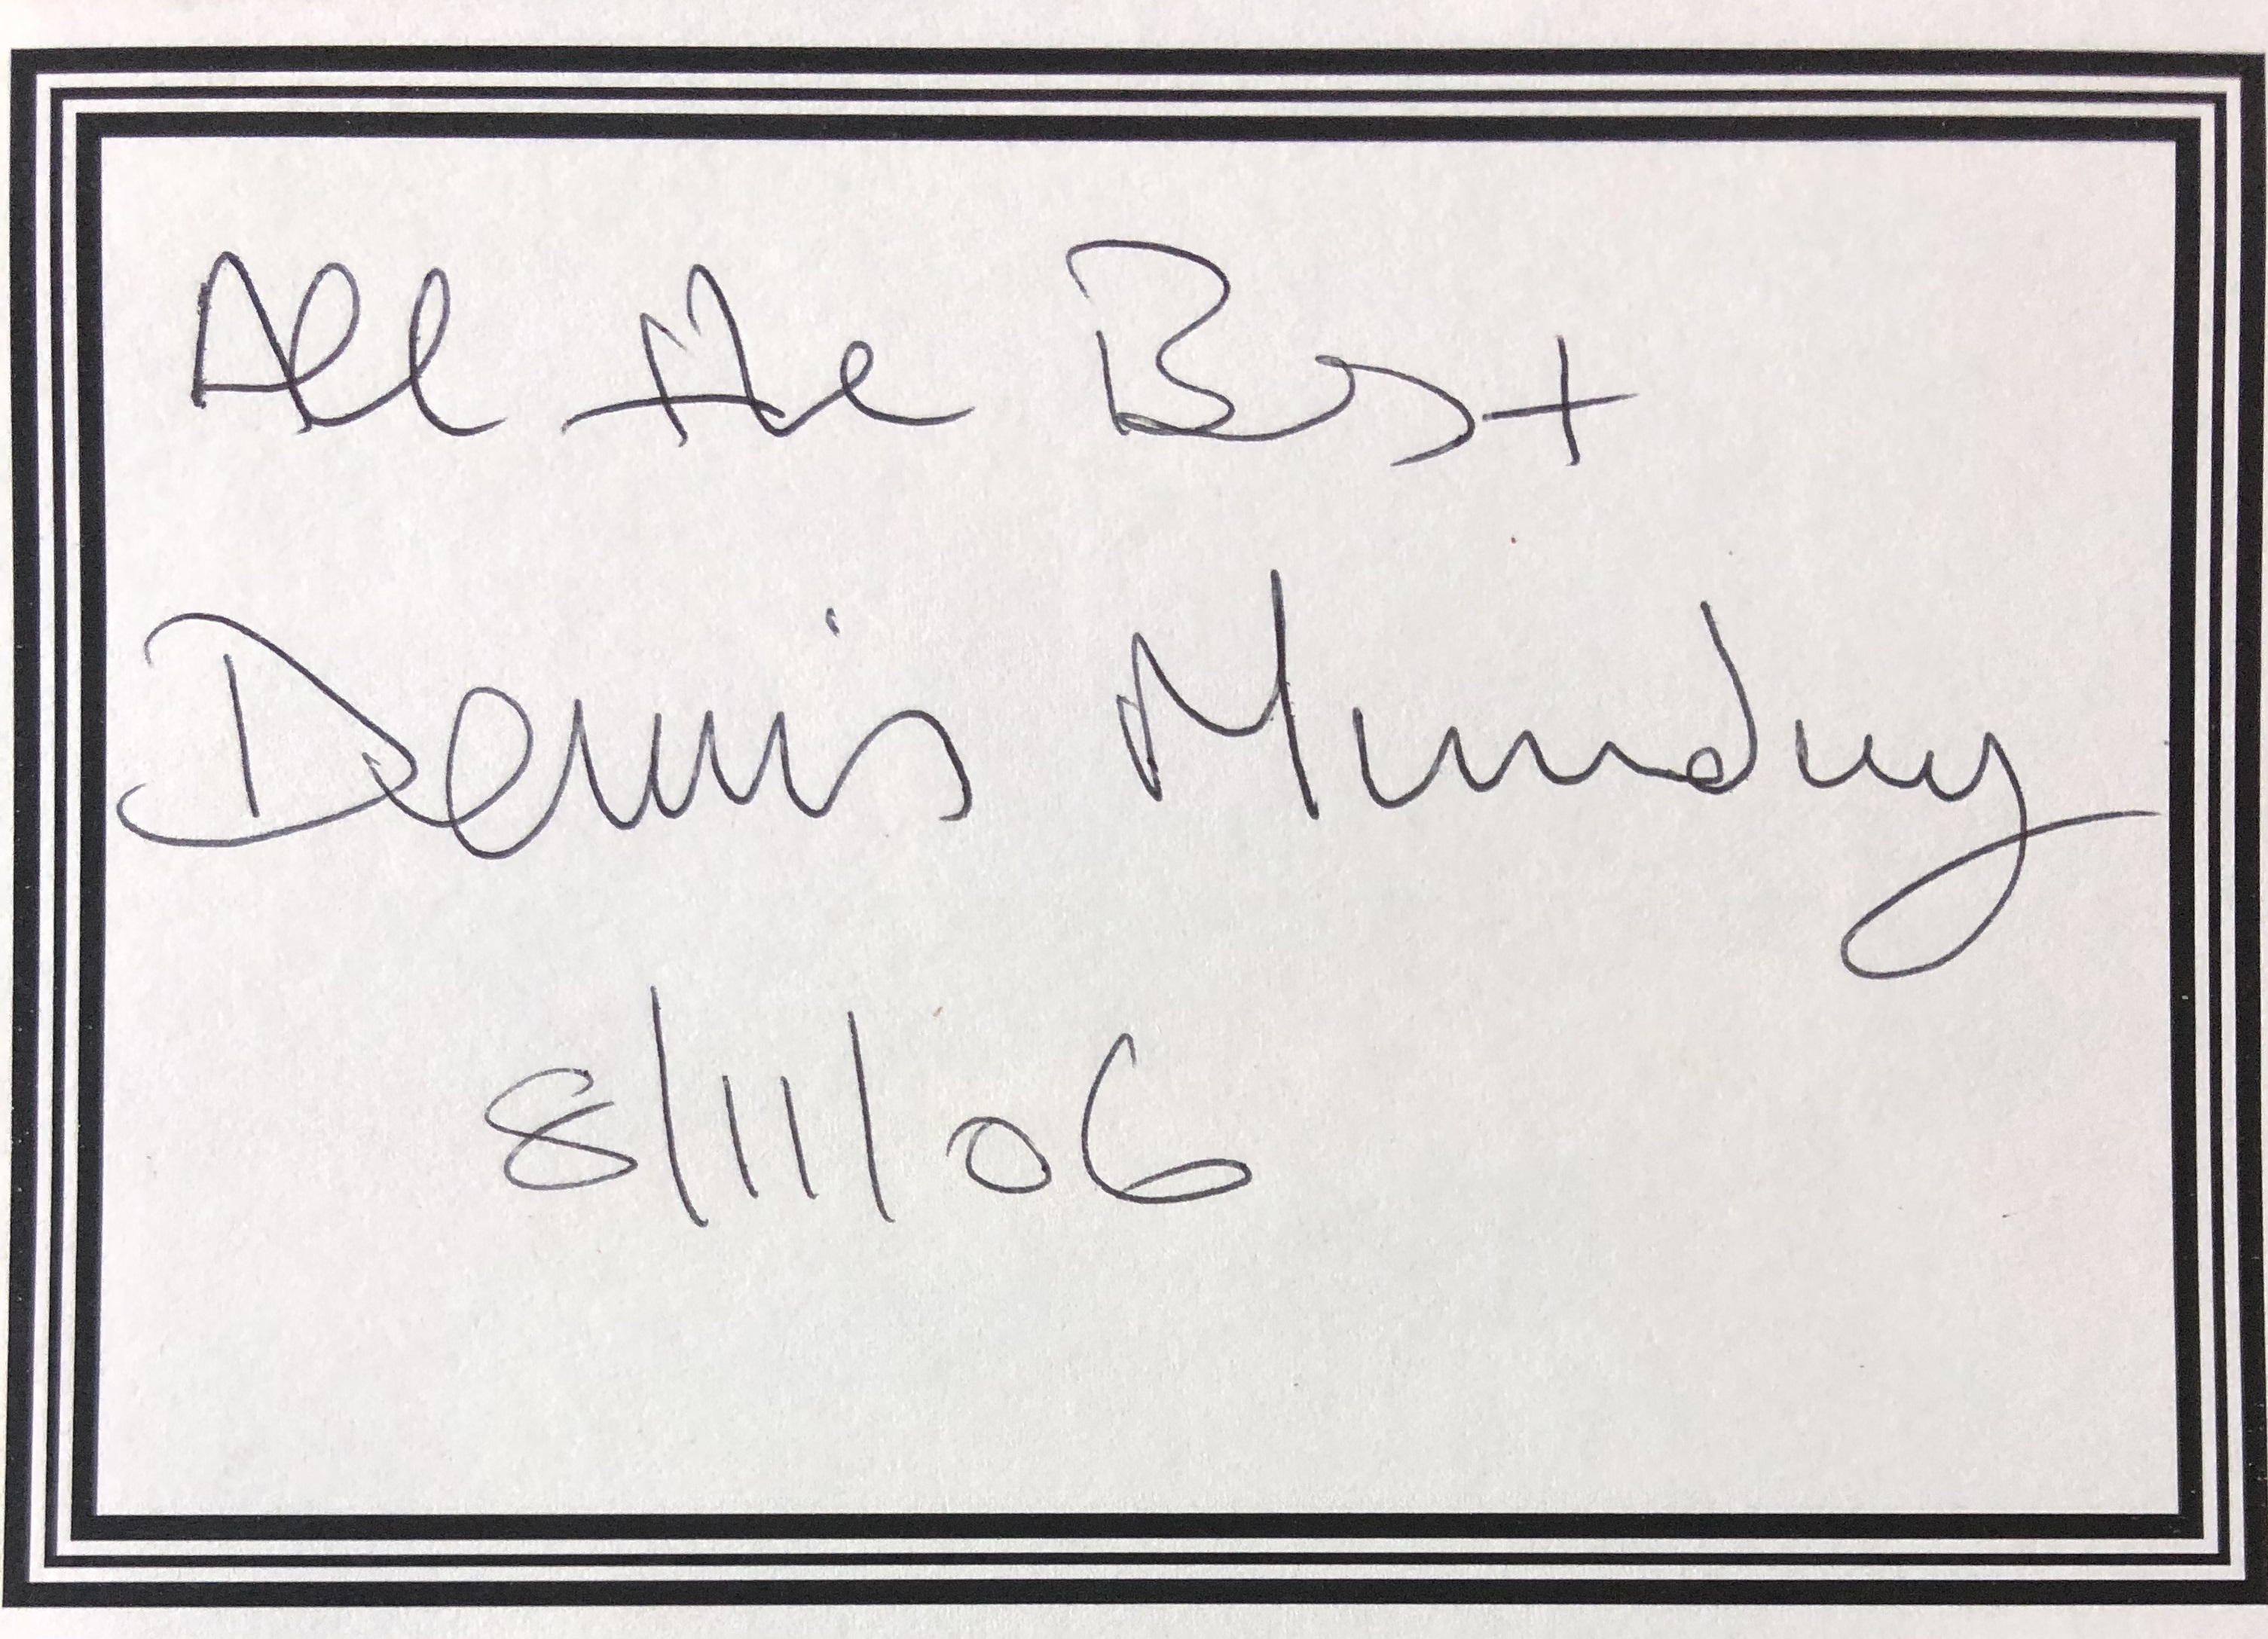 All the Best
Dennis Munday
8/11/06